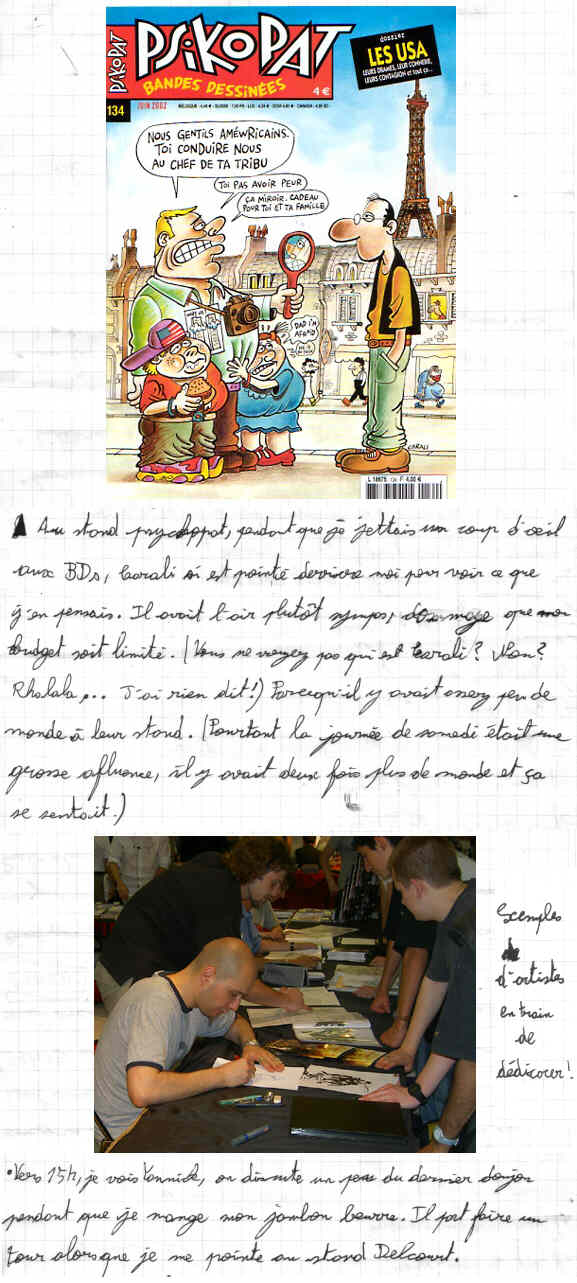 PSIKOPAT
PSIKOPAT
BANDES DESSINÉES
4 €
dossier
LES USA
LEURS DRAMES, LEUR CONNERIE,
LEURS CONTAGION et tout ça...
134
JUIN 2002
NOUS GENTILS AMÉWRICAINS.
TOI CONDUIRE NOUS
AU CHEF DE TA TRIBU
TOI PAS AVOIR PEUR
ÇA MIROIR. CADEAU
POUR TOI ET TA FAMILLE
DAD I'M
AFRAID
CARALI
Au stand psychopat, pendant que je jettais un coup d'oeil
aux BDs, Carali s'est pointé derrière moi pour voir ce que
j'en pensais. Il avait l'air plutôt sympa, dommage que mon
budget soit limité. (Vous ne voyez pas qui est Carali? Non?
Rholala,... J'ai rien dit!) Parcequ'il y avait assez peu de
monde à leur stand. (Pourtant la journée de samedi était une
grosse afluence, il y avait deux fois plus de monde et ça
se sentait.)
Exemples
d'artistes
en train
de
dédicacer!
•Vers 15h, je vois Yannick, on discute un peu du dernier donjon
pendant que je mange mon jambon beurre. Il part faire un
tour alors que je me pointe au stand Delcourt.